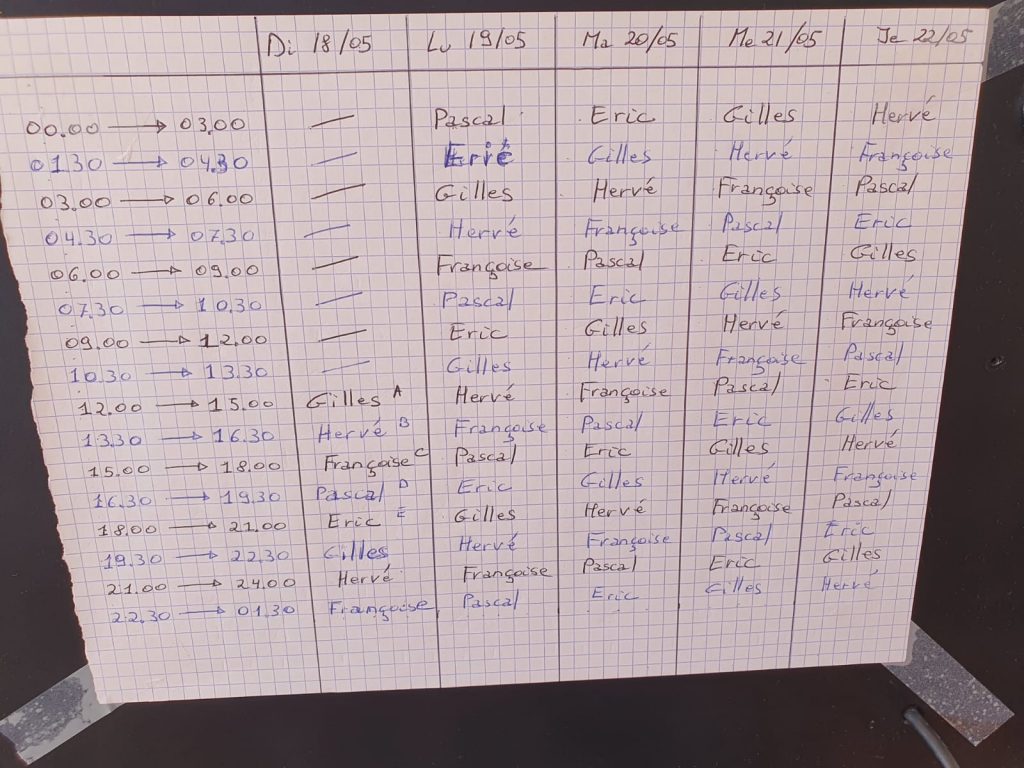 Di 18/05 Lu 19/05 Ma 20/05 Me 21/05 Je 22/05
00.00 → 03.00 — Pascal Eric Gilles Hervé
01.30 → 04.30 — Gilles Hervé Françoise
03.00 → 06.00 — Gilles Hervé Françoise Pascal
04.30 → 07.30 — Hervé Françoise Pascal Eric
06.00 → 09.00 — Françoise Pascal Eric Gilles
07.30 → 10.30 — Pascal Eric Gilles Hervé
09.00 → 12.00 — Eric Gilles Hervé Françoise
10.30 → 13.30 — Gilles Hervé Françoise Pascal
12.00 → 15.00 Gilles A Hervé Françoise Pascal Eric
13.30 → 16.30 Hervé B Françoise Pascal Eric Gilles
15.00 → 18.00 Françoise C Pascal Eric Gilles Hervé
16.30 → 19.30 Pascal D Eric Gilles Hervé Françoise
18.00 → 21.00 Eric E Gilles Hervé Françoise Pascal
19.30 → 22.30 Gilles Hervé Françoise Pascal Eric
21.00 → 24.00 Hervé Françoise Pascal Eric Gilles
22.30 → 01.30 Françoise Pascal Eric Gilles Hervé